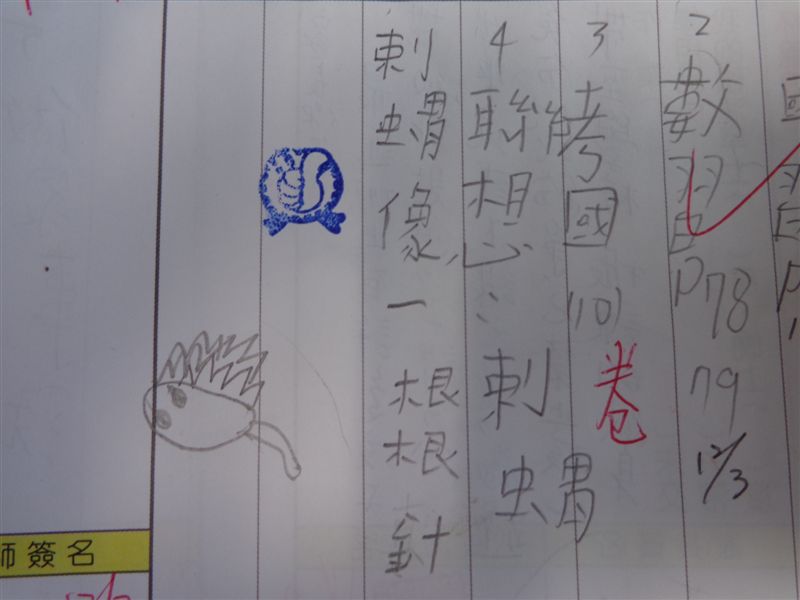 2 數習P78 79 12/3
3 考國(10)卷
4 聯想:刺蝟
刺蝟像一根根針
師簽名